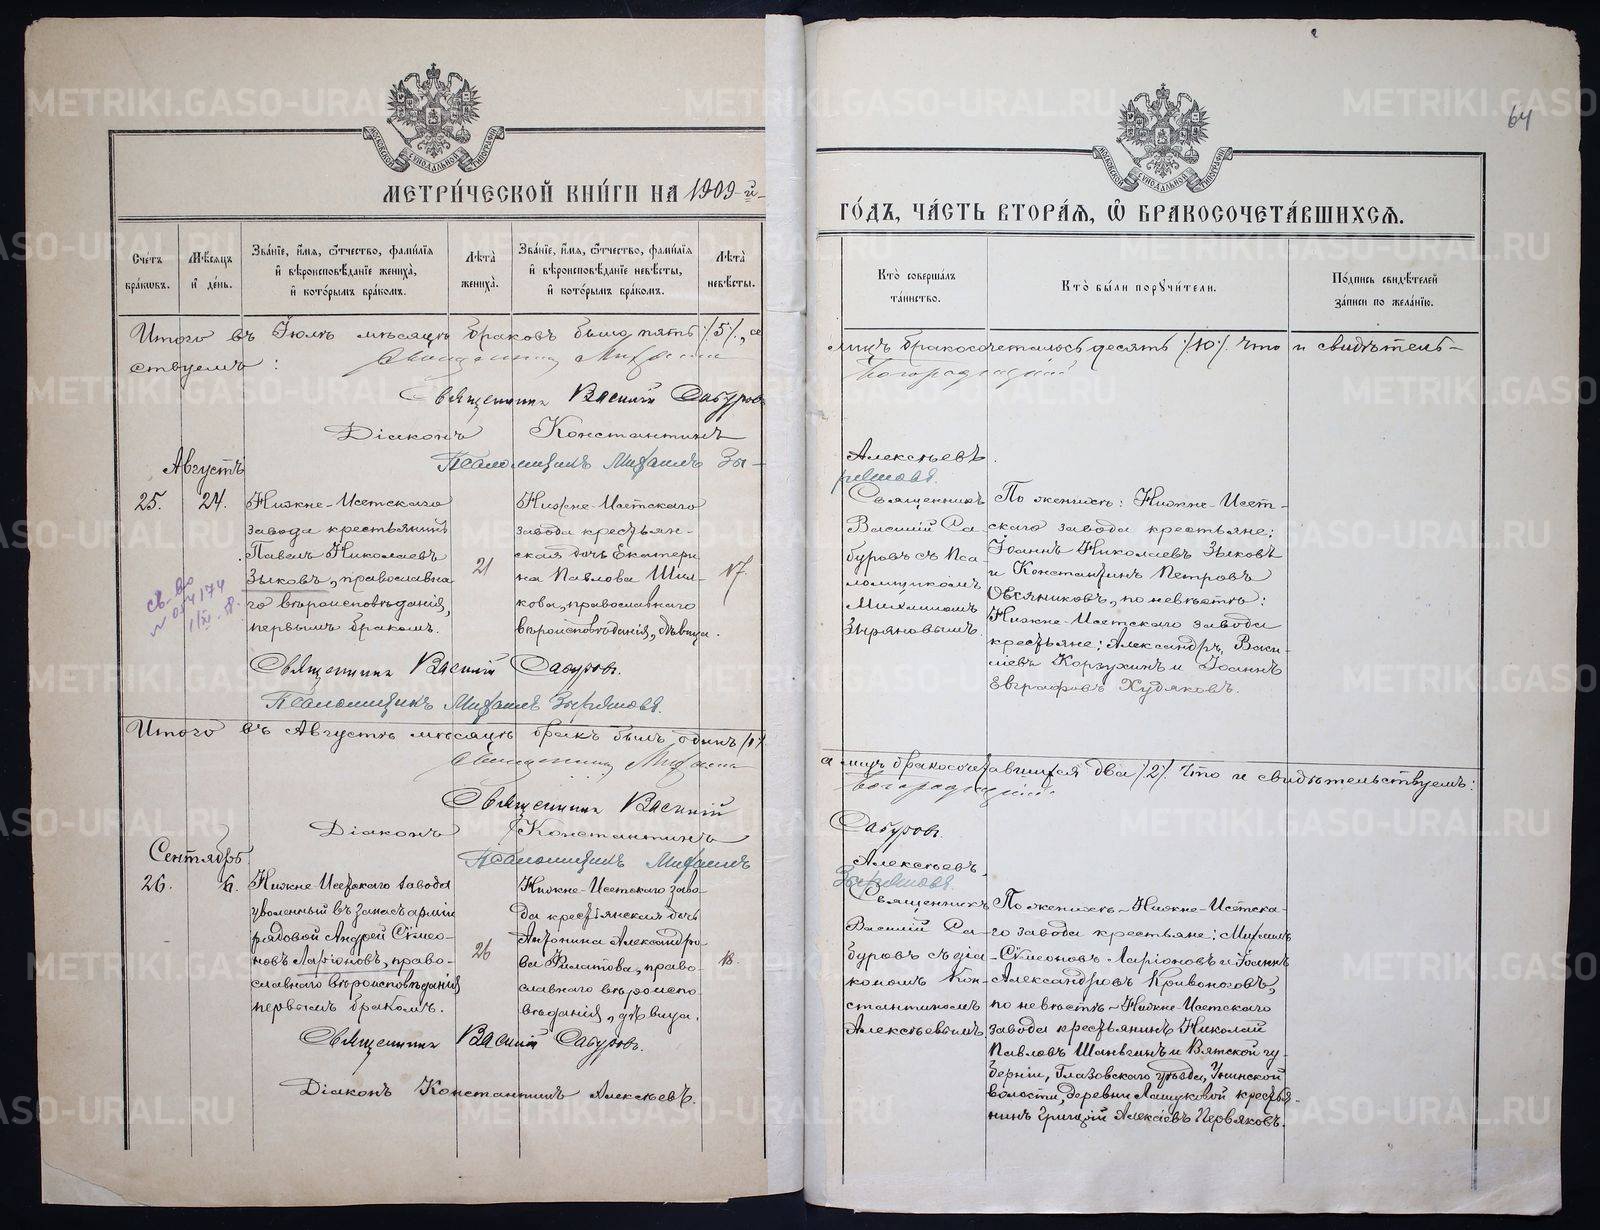 64
МЕТРИ́ЧЕСКОЙ КНИ́ГИ НА 1909-й
ГО́ДЪ, ЧА́СТЬ ВТОРА́Я, Ѡ БРАКОСОЧЕТА́ВШИХСЯ.
Счетъ бра́кѡвъ.
Мѣ́сяцъ и҆ де́нь.
Зва́нїе, и҆́мя, ѻ҆́тчество, фами́лїя и҆ вѣроисповѣ́данїе жениха̀, и҆ кото́рымъ бра́комъ.
Лѣ́та жениха̀.
Зва́нїе, и҆́мя, ѻ҆́тчество, фами́лїя и҆ вѣроисповѣ́данїе невѣ́сты, и҆ кото́рымъ бра́комъ.
Лѣ́та невѣ́сты.
Кто̀ соверша́лъ та́инство.
Кто̀ бы́ли поручи́тели.
По́дпись свидѣ́телей за́писи по жела́нїю.
Итого въ Іюлѣ мѣсяцѣ браковъ было пять /5/, а
лицъ бракосочеталось десять /10/. Что и свидѣтель-
ствуемъ:
Священникъ Михаилъ
Богородицкій
Священникъ Василій Сабуровъ
Діаконъ Константинъ
Алексѣевъ.
Псаломщикъ Михаилъ Зы-
ряновъ.
Августъ
25.
24.
Нижне-Исетскаго
завода крестьянинъ
Павелъ Николаевъ
Зыковъ, православна
го вѣроисповѣданія,
первымъ бракомъ.
21
Нижне-Исетскаго
завода крестьян-
ская дочь Екатери
на Павлова Шил-
кова, православнаго
вѣроисповѣданія, дѣвица.
17.
Священникъ
Василій Са-
буровъ съ Пса
ломщикомъ
Михаиломъ
Зыряновымъ.
По женихѣ: Нижне-Исет-
скаго завода крестьяне:
Іоаннъ Николаевъ Зыковъ
и Константинъ Петровъ
Овсянниковъ, по невѣстѣ:
Нижне-Исетскаго завода
крестьяне: Александръ Васи-
ліевъ Корзухинъ и Іоаннъ
Евграфовъ Худяковъ.
св-во
Священникъ Василій Сабуровъ.
Псаломщикъ Михаилъ Зыряновъ.
Итого въ Августѣ мѣсяцѣ бракъ былъ одинъ /1/
а лицъ бракосочетавшихся два /2/. Что и свидѣтельствуемъ:
Священникъ Михаилъ
Богородицкій.
Священникъ Василій
Сабуровъ.
Діаконъ Константинъ
Алексѣевъ.
Псаломщикъ Михаилъ
Зыряновъ.
Сентябрь
26.
6.
Нижне-Исетскаго завода
уволенный въ запасъ арміи
рядовой Андрей Сѵмео-
новъ Ларіоновъ, право-
славнаго вѣроисповѣданія
первымъ бракомъ.
26
Нижне-Исетскаго заво-
да крестьянская дочь
Антонина Александро-
ва Филатова, право-
славнаго вѣроиспо
вѣданія, дѣвица.
18.
Священникъ
Василій Са-
буровъ съ діа-
кономъ Кон-
стантиномъ
Алексѣевымъ.
По женихѣ - Нижне-Исетска-
го завода крестьяне: Михаилъ
Сѵмеоновъ Ларіоновъ и Іоаннъ
Александровъ Кривоноговъ,
по невѣстѣ - Нижне-Исетскаго
завода крестьянинъ Николай
Павловъ Шаньгинъ и Вятской гу-
берніи, Глазовскаго уѣзда, Унинской
волости, деревни Лашуковой крестья-
нинъ Григорій Алексіевъ Первяковъ.
Священникъ Василій Сабуровъ.
Діаконъ Константинъ Алексѣевъ.